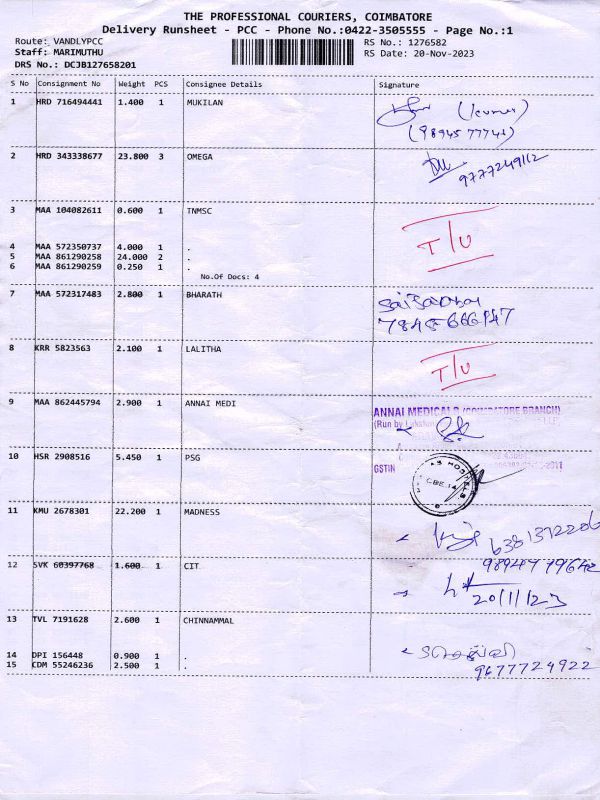 THE PROFESSIONAL COURIERS, COIMBATORE
Delivery Runsheet - PCC - Phone No.:0422-3505555 - Page No.:1
Route: VANDLYPCC RS No.: 1276582
Staff: MARIMUTHU RS Date: 20-Nov-2023
DRS No.: DCJB127658201
S No Consignment No Weight PCS Consignee Details Signature
1 HRD 716494441 1.400 1 MUKILAN
(kumar)
(98945 77741)
2 HRD 343338677 23.800 3 OMEGA
9777249112
3 MAA 104082611 0.600 1 TNMSC
T/U
4 MAA 572350737 4.000 1 .
5 MAA 861290258 24.000 2 .
6 MAA 861290259 0.250 1 .
No.Of Docs: 4
7 MAA 572317483 2.800 1 BHARATH
7845666947
8 KRR 5823563 2.100 1 LALITHA
T/U
9 MAA 862445794 2.900 1 ANNAI MEDI
ANNAI MEDICALS (COIMBATORE BRANCH)
(Run by
10 HSR 2908516 5.450 1 PSG
GSTIN
CBE 14
11 KMU 2678301 22.200 1 MADNESS
12 SVK 60397768 1.600 1 CIT
20/11/23
13 TVL 7191628 2.600 1 CHINNAMMAL
14 DPI 156448 0.900 1 .
15 CDM 55246236 2.500 1 .
9677724922